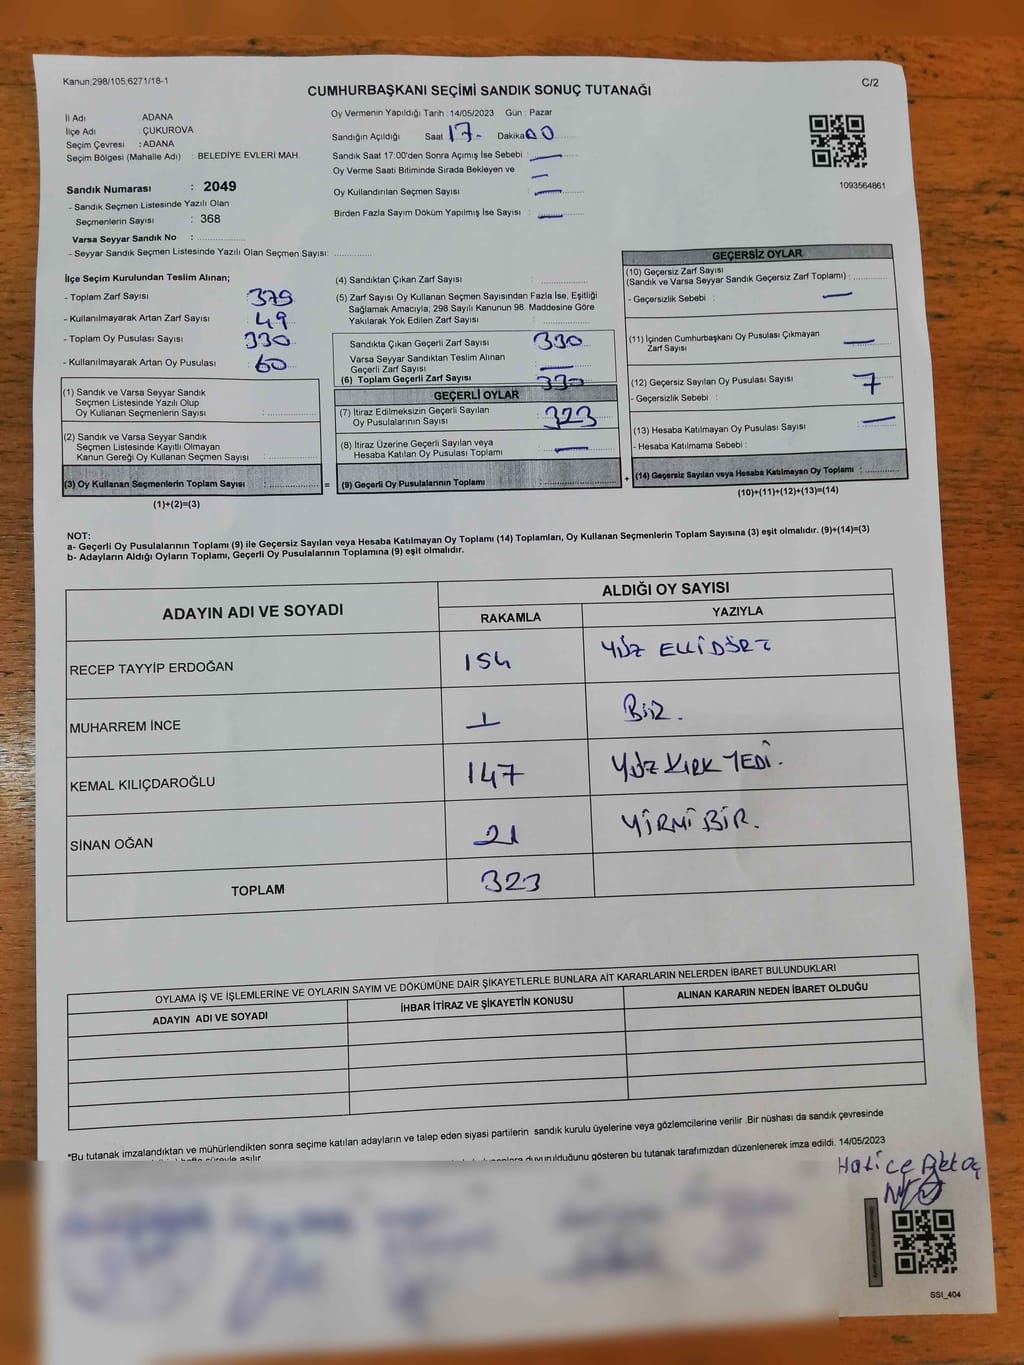 Kanun;298/105;6271/18-1
C/2
CUMHURBAŞKANI SEÇİMİ SANDIK SONUÇ TUTANAĞI
İl Adı ADANA
İlçe Adı : ÇUKUROVA
Seçim Çevresi : ADANA
Seçim Bölgesi (Mahalle Adı) : BELEDİYE EVLERİ MAH.
Sandık Numarası : 2049
- Sandık Seçmen Listesinde Yazılı Olan
Seçmenlerin Sayısı : 368
Varsa Seyyar Sandık No :
- Seyyar Sandık Seçmen Listesinde Yazılı Olan Seçmen Sayısı:
Oy Vermenin Yapıldığı Tarih : 14/05/2023 Gün : Pazar
Sandığın Açıldığı Saat 17- Dakika 00
Sandık Saat 17:00'den Sonra Açımış İse Sebebi : —
Oy Verme Saati Bitiminde Sırada Bekleyen ve —
Oy Kullandırılan Seçmen Sayısı : —
Birden Fazla Sayım Döküm Yapılmış İse Sayısı : —
1093564861
İlçe Seçim Kurulundan Teslim Alınan;
- Toplam Zarf Sayısı 379
- Kullanılmayarak Artan Zarf Sayısı : 49
- Toplam Oy Pusulası Sayısı : 330
- Kullanılmayarak Artan Oy Pusulası : 60
(1) Sandık ve Varsa Seyyar Sandık
Seçmen Listesinde Yazılı Olup
Oy Kullanan Seçmenlerin Sayısı :
(2) Sandık ve Varsa Seyyar Sandık
Seçmen Listesinde Kayıtlı Olmayan
Kanun Gereği Oy Kullanan Seçmen Sayısı :
(3) Oy Kullanan Seçmenlerin Toplam Sayısı : =
(1)+(2)=(3)
(4) Sandıktan Çıkan Zarf Sayısı :
(5) Zarf Sayısı Oy Kullanan Seçmen Sayısından Fazla İse, Eşitliği
Sağlamak Amacıyla; 298 Sayılı Kanunun 98. Maddesine Göre
Yakılarak Yok Edilen Zarf Sayısı :
Sandıkta Çıkan Geçerli Zarf Sayısı : 330
Varsa Seyyar Sandıktan Teslim Alınan
Geçerli Zarf Sayısı : —
(6) Toplam Geçerli Zarf Sayısı : 330
GEÇERLİ OYLAR
(7) İtiraz Edilmeksizin Geçerli Sayılan
Oy Pusulalarının Sayısı : 323
(8) İtiraz Üzerine Geçerli Sayılan veya
Hesaba Katılan Oy Pusulası Toplamı : —
(9) Geçerli Oy Pusulalarının Toplamı : +
GEÇERSİZ OYLAR
(10) Geçersiz Zarf Sayısı
(Sandık ve Varsa Seyyar Sandık Geçersiz Zarf Toplamı) :
- Geçersizlik Sebebi : —
(11) İçinden Cumhurbaşkanı Oy Pusulası Çıkmayan
Zarf Sayısı : —
(12) Geçersiz Sayılan Oy Pusulası Sayısı : 7
- Geçersizlik Sebebi :
(13) Hesaba Katılmayan Oy Pusulası Sayısı : —
- Hesaba Katılmama Sebebi :
(14) Geçersiz Sayılan veya Hesaba Katılmayan Oy Toplamı :
(10)+(11)+(12)+(13)=(14)
NOT:
a- Geçerli Oy Pusulalarının Toplamı (9) ile Geçersiz Sayılan veya Hesaba Katılmayan Oy Toplamı (14) Toplamları, Oy Kullanan Seçmenlerin Toplam Sayısına (3) eşit olmalıdır. (9)+(14)=(3)
b- Adayların Aldığı Oyların Toplamı, Geçerli Oy Pusulalarının Toplamına (9) eşit olmalıdır.
ADAYIN ADI VE SOYADI ALDIĞI OY SAYISI
RAKAMLA YAZIYLA
RECEP TAYYİP ERDOĞAN 154 YÜZ ELLİDÖRT
MUHARREM İNCE 1 BİR.
KEMAL KILIÇDAROĞLU 147 YÜZ KIRK YEDİ.
SİNAN OĞAN 21 YİRMİ BİR.
TOPLAM 323
OYLAMA İŞ VE İŞLEMLERİNE VE OYLARIN SAYIM VE DÖKÜMÜNE DAİR ŞİKAYETLERLE BUNLARA AİT KARARLARIN NELERDEN İBARET BULUNDUKLARI
ADAYIN ADI VE SOYADI İHBAR İTİRAZ VE ŞİKAYETİN KONUSU ALINAN KARARIN NEDEN İBARET OLDUĞU
*Bu tutanak imzalandıktan ve mühürlendikten sonra seçime katılan adayların ve talep eden siyasi partilerin sandık kurulu üyelerine veya gözlemcilerine verilir .Bir nüshası da sandık çevresinde
hafta süreyle asılır duyurulduğunu gösteren bu tutanak tarafımızdan düzenlenerek imza edildi. 14/05/2023
Hatice Aktaş
SSI_404